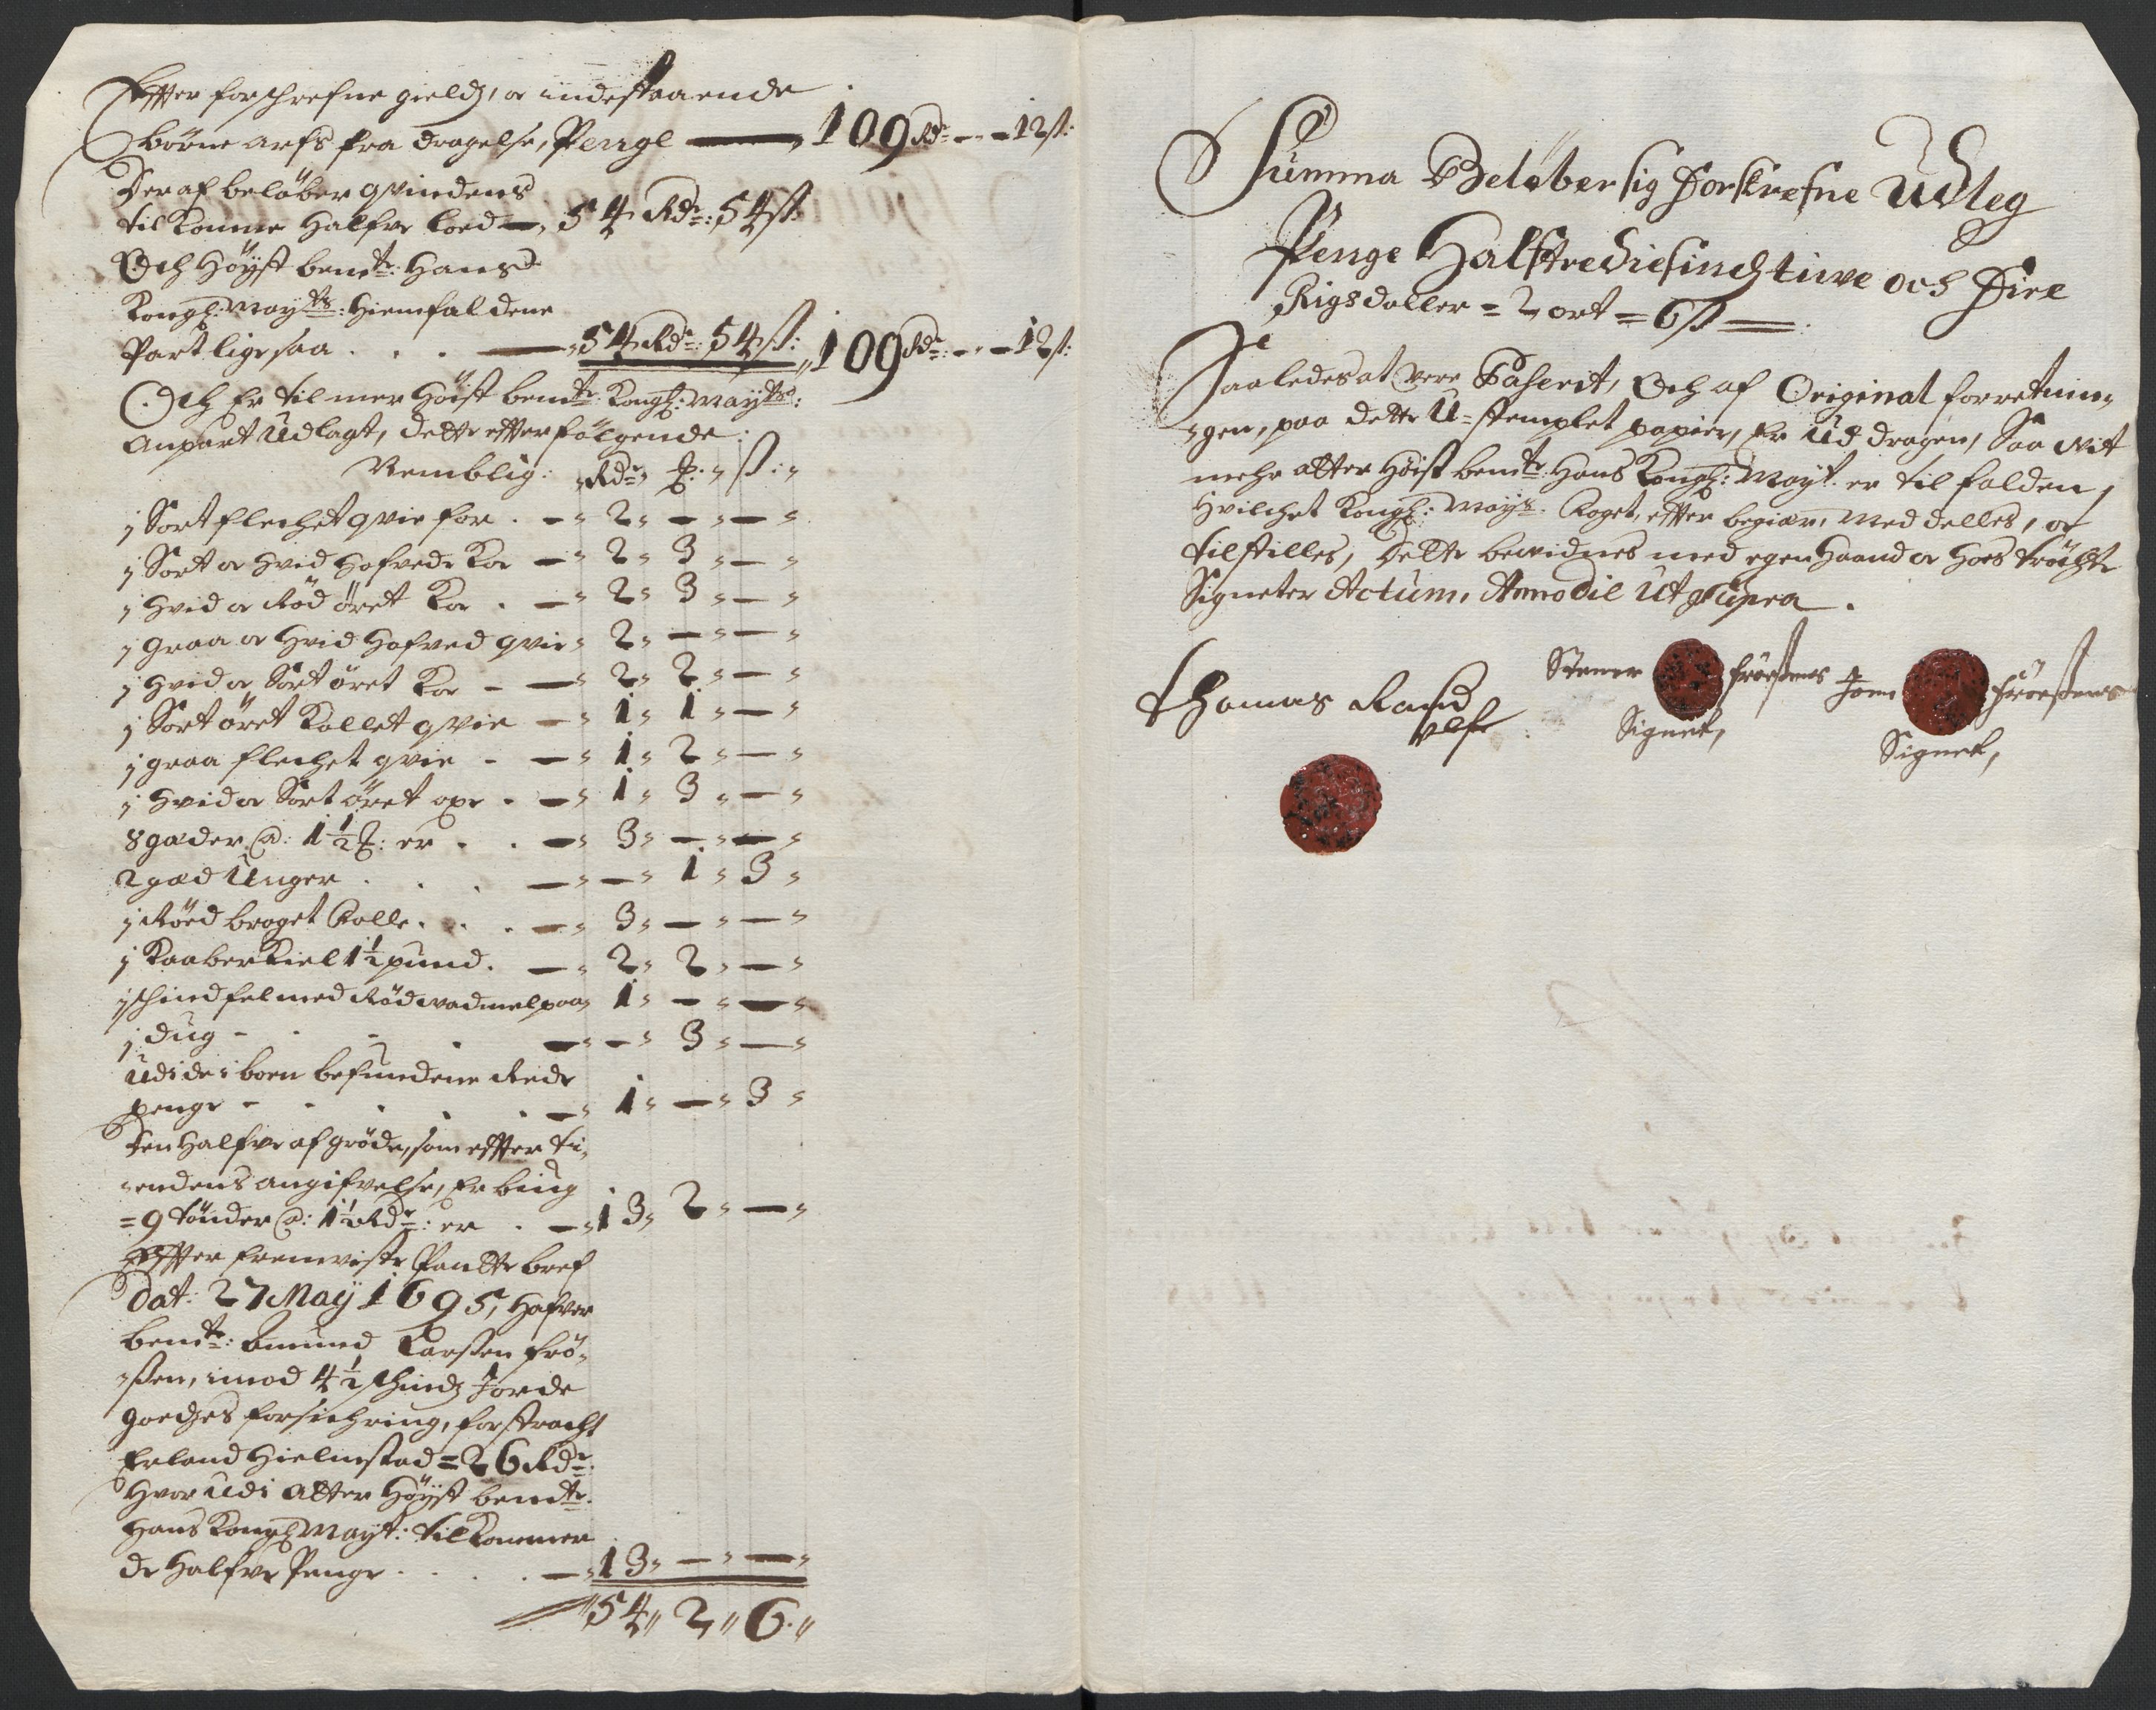 Effter forschrefne gield, og indestaaende
børne arfs fra dragelse, Penge — 109 Rdr — 12 ß:
Deraf beløber qvindens
tilkomne Halfve loed — 54 Rdr: 54 ß:
Och Høyst bemte: Hans
Kongl: Mayts: Hiemfaldene
Part lige saa . . . — 54 Rdr: 54 ß: 109 Rdr: — 12 ß:
Och Er til mer Høist bemte: Kongl: Mayts:
Anpart Udlagt, dette efterfølgende:
Nemblig: Rdr ß:
j Sort flechet qvie for . — 2 — —
j Sort og Hvid Hofvede Koe — 2 3 —
j Hvid og Rød øret Koe . — 2 3 —
j Graa og Hvid Hofved qvie 2 — —
j Hvid og Sort øret Koe — 2 2 —
j Sort øret Kollet qvie — 1 1 —
j graa flechet qvie — 1 2 —
j Hvid og Sort øret oxe . — 1 3 —
8 gieder @: 1½ : er . . — 3 — —
2 gied Unger . . . — — 1 3
j Røed braget Folle . . — 3 — —
j Kaaberkiel 1½ pund . — 2 2 —
j schind fel med Rød vadmel paa 1 — —
j dug — — 3 —
Udi de i boen befundene Rede
penge — 1 — 3
Den Halfve af grøde, som effter ti-
endens angifvelse, Er biug
= 9 tønder @: 1½ Rdr: er . — 13 2 —
Effter fremviste Pandte bref
dat: 27 May 1695, Hafver
bemte: Amund Larsen Frø-
sen, imod 4½ schind Jorde
goedzes forsichring, forstracht
Erland Hielmstad = 26 Rdr:
Hvor udi atter Høyst bemte:
Hans Kongl Mayt: tilkommer
de Halfve Penge . . . — 13 — —
54 2 6
Summa Beløber sig Forskrefne Udleg
Penge Halftrediesindstiuve och Fire
Rigsdaller = 2 ort = 6 ß —
Saaledes at vere Paserit, Och af Original forretnin-
gen, paa dette U-stemplet papier, Er Ud dragen, Saa vit
mehr atter Høist bemte: Hans Kongl: Mayt. er til falden,
Hvilchet Kongl: Mayts. Foget, effter begiær, Meddelles, og
tilstilles, Dette bevidnes med egen Haand og Hoes trøchte
Signeter Actum, Anno Die Ut Supra .
Thomas Rasch
Stener Frøsens
Signet,
Joen Frøesens
Signet,